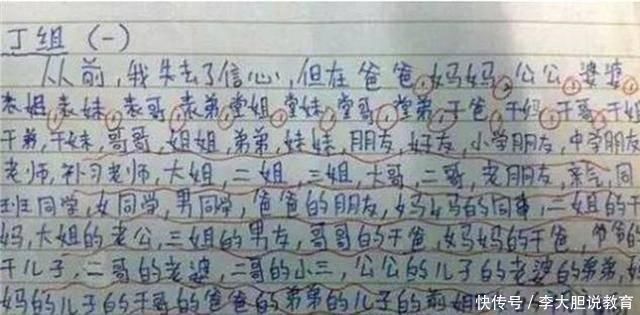 丁组（一）
从前，我失去了信心，但在爸爸，妈妈，公公，婆婆，
表姐，表妹，表哥，表弟，堂姐，堂妹，堂哥，堂弟，干爸，干妈，干哥，干姐
干弟，干妹，哥哥，姐姐，弟弟，妹妹，朋友，好友，小学朋友，中学朋友
老师，补习老师，大姐，二姐，三姐，大哥，二哥，老朋友，亲戚，同
班同学，女同学，男同学，爸爸的朋友，妈妈的同事，二姐的干
妈，大姐的老公，三姐的男友，哥哥的干爸，妈妈的干爸，爷爷的
干儿子，二哥的老婆，二哥的小三，公公的儿子的老婆的弟弟，
妈的儿子的干哥的爸爸的弟弟的儿子的前姐
快传号／李大胆说教育